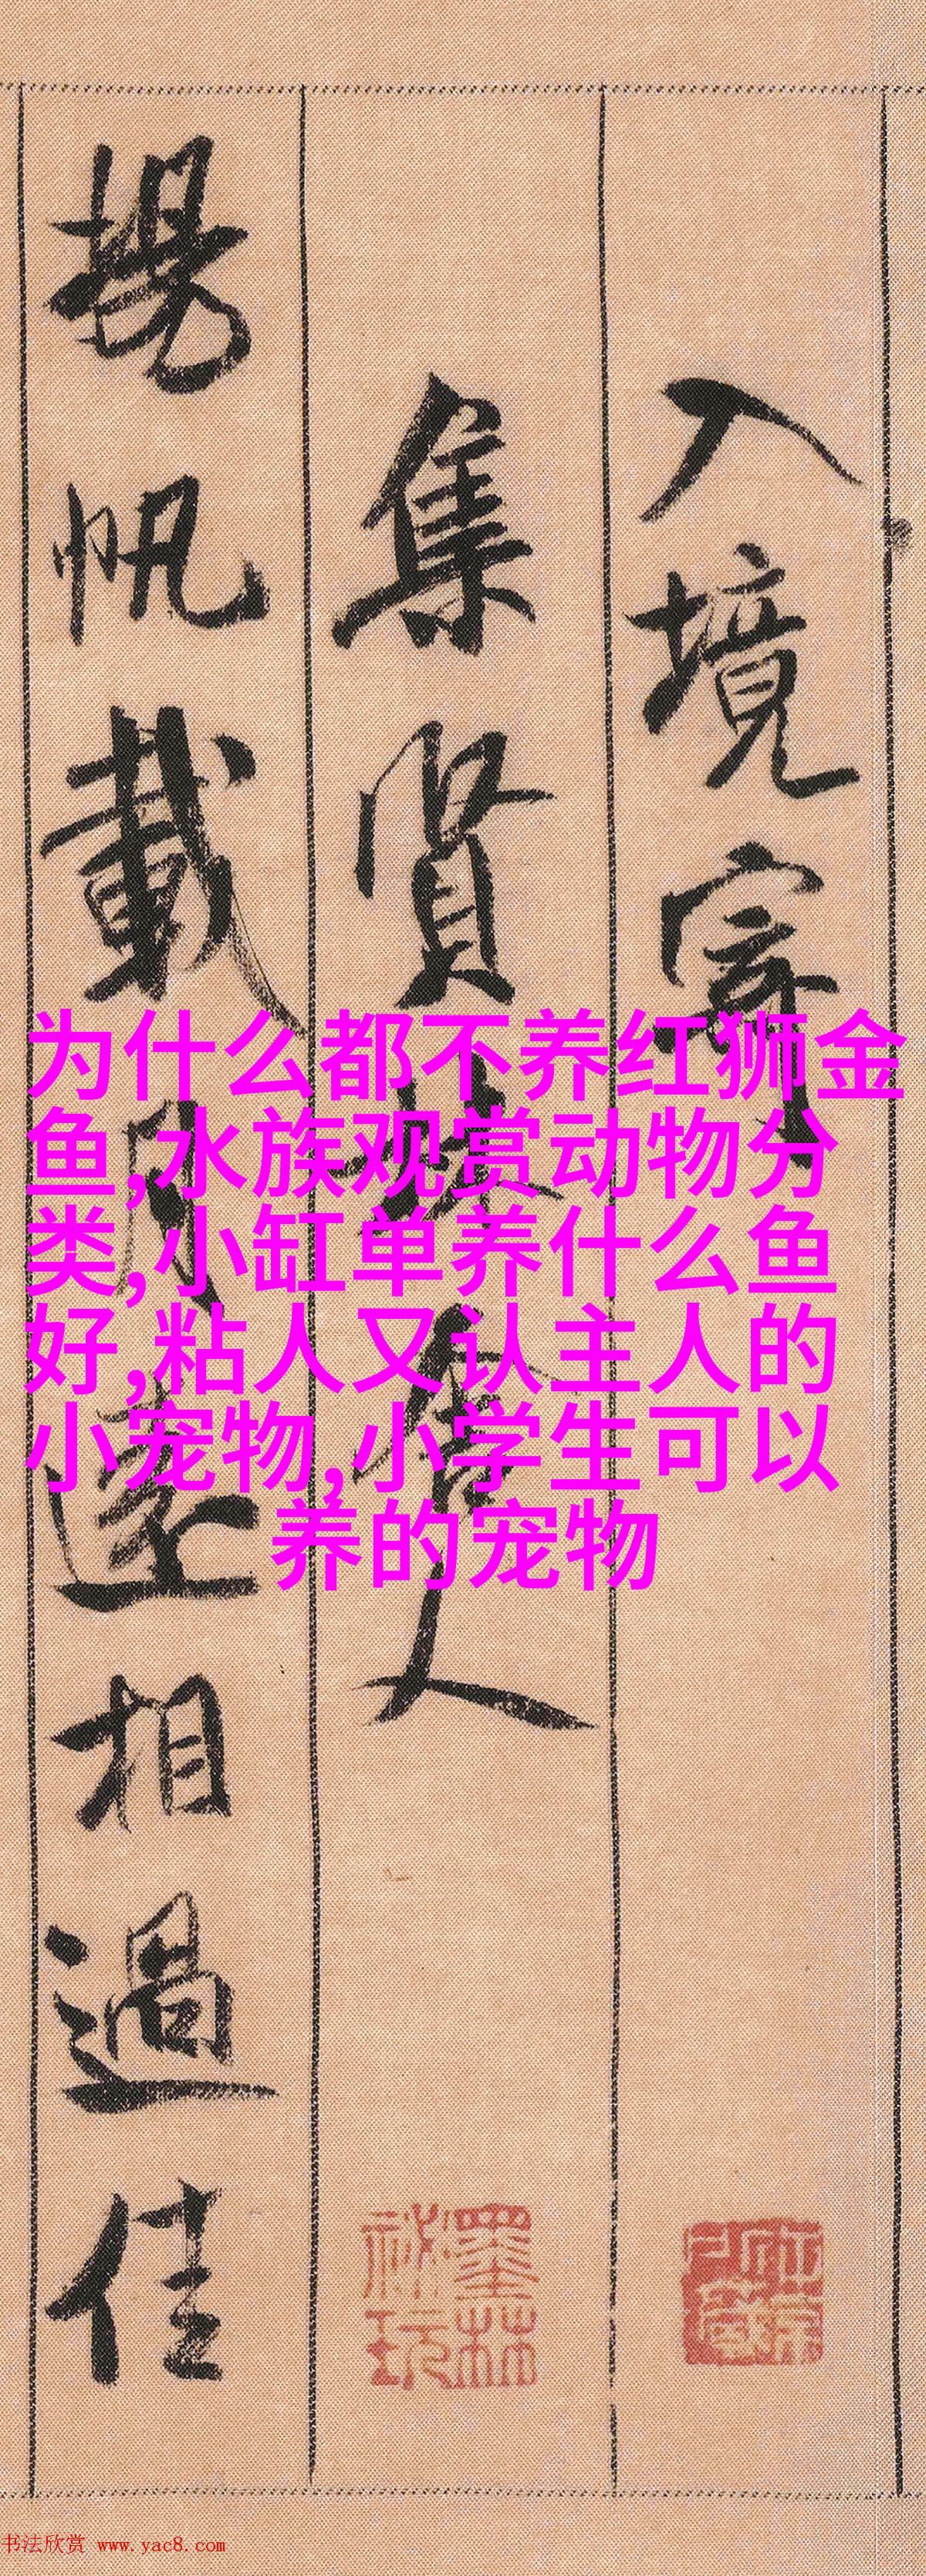 入境寄
集賢林舍人
揚帆載月遠相過佳
墨林
祕玩
为什么都不养红狮金
鱼,水族观赏动物分
类,小缸单养什么鱼
好,粘人又认主人的
小宠物,小学生可以
养的宠物
书法欣赏 www.yac8.com